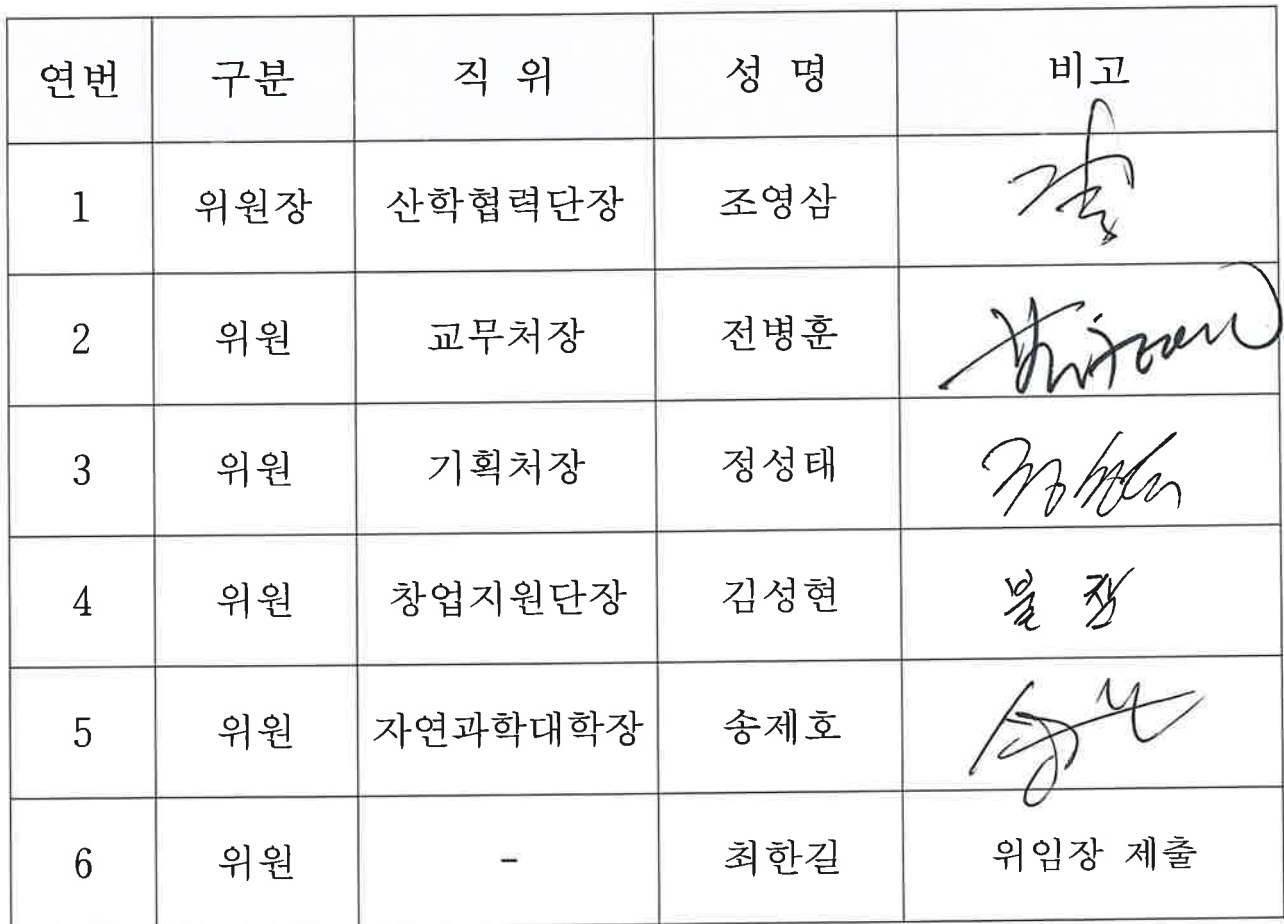 연번 구분 직 위 성 명 비고
1 위원장 산학협력단장 조영삼
2 위원 교무처장 전병훈
3 위원 기획처장 정성태
4 위원 창업지원단장 김성현 불참
5 위원 자연과학대학장 송제호
6 위원 - 최한길 위임장 제출